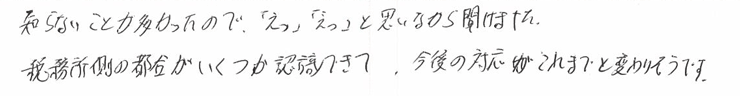 知らないことが多かったので、「えっ」「えっ」と思いながら聞けました.
税務所側の都合がいくつか認識できて、今後の対応がこれまでと変わりそうです.